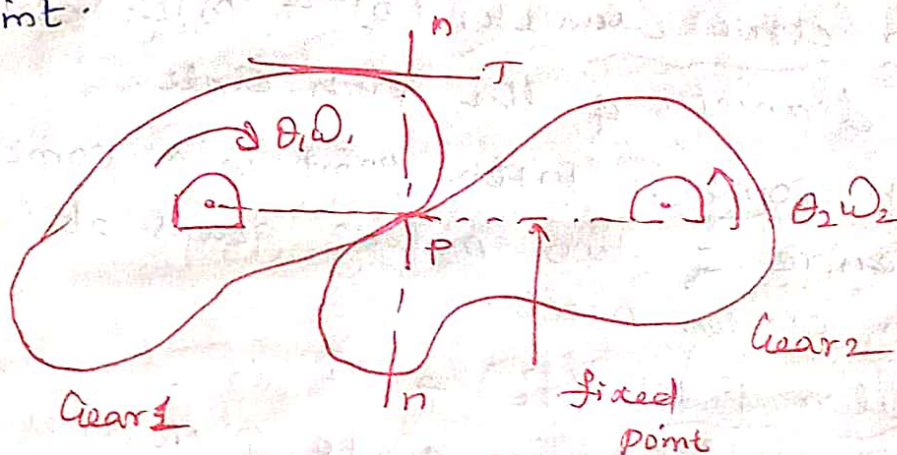 int.
n
T
θ₁ω₁
P
θ₂ω₂
Gear2
n
fixed
point
Gear1